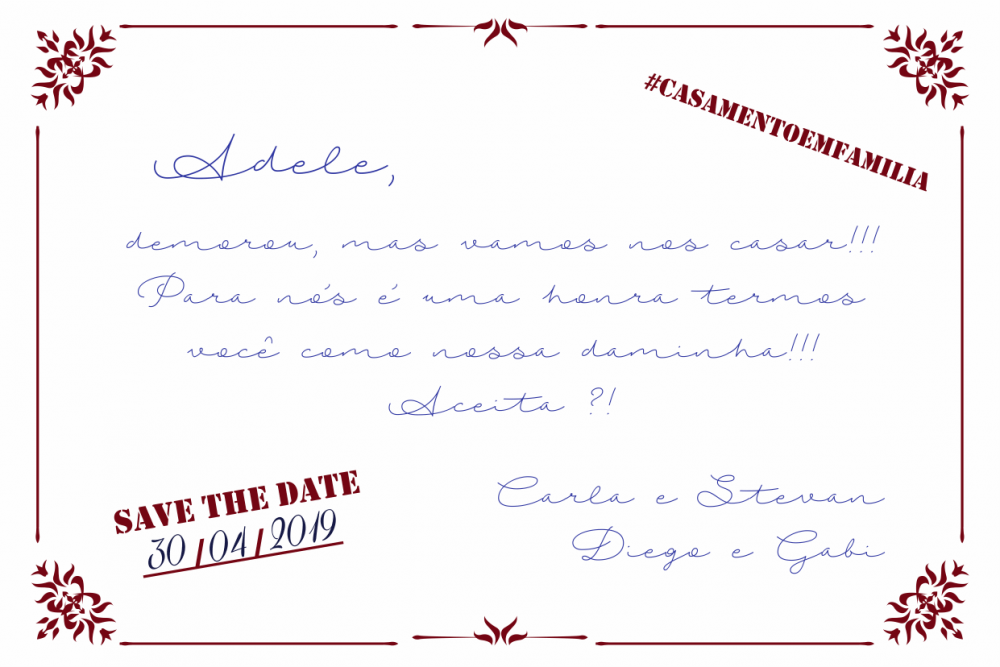 #CASAMENTOEMFAMILIA
Adele,
demorou, mas vamos nos casar!!!
Para nós é uma honra termos
você como nossa daminha!!!
Aceita ?!
SAVE THE DATE
30/04/2019
Carla e Stevan
Diego e Gabi